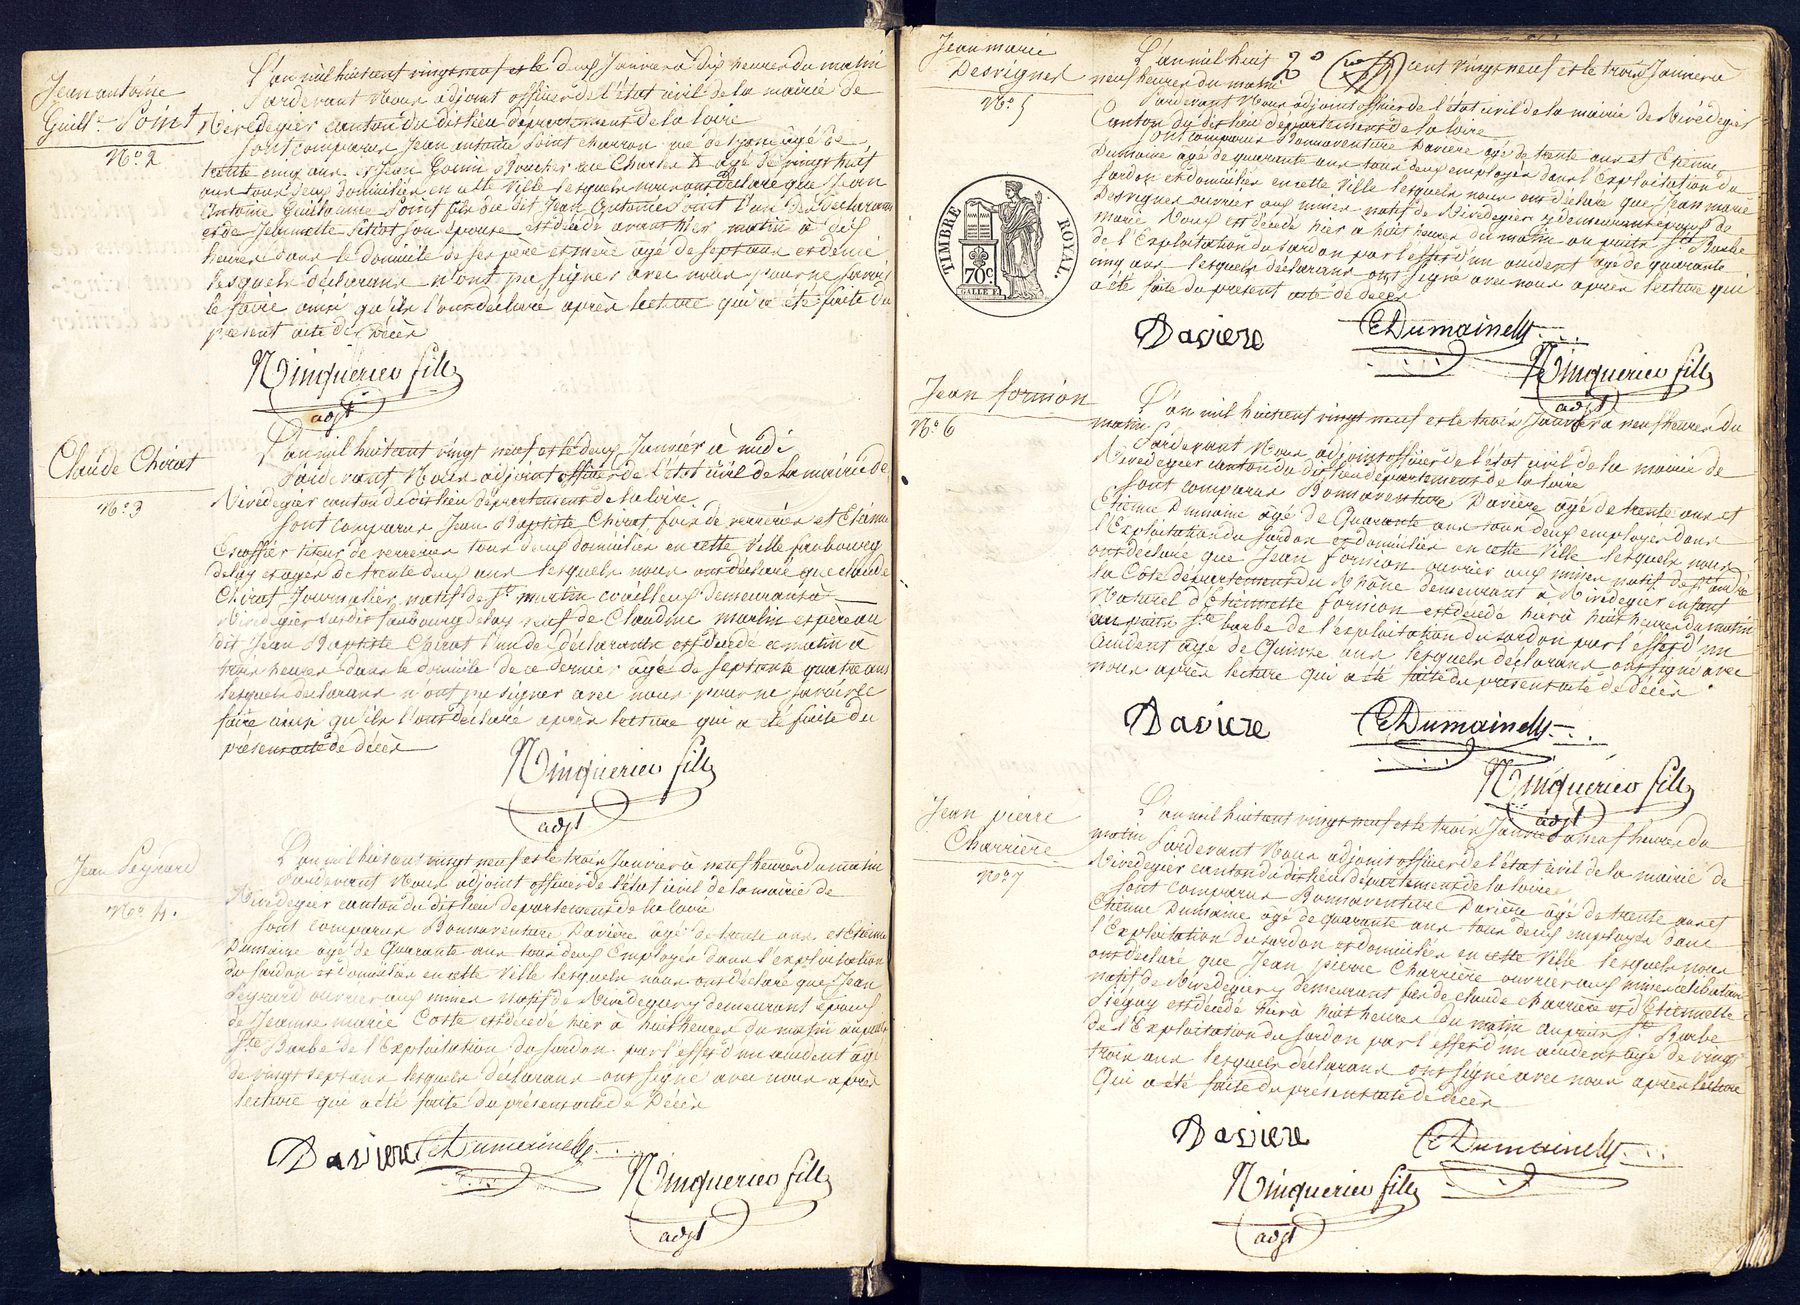 Jean antoine
Guill.e Point
N.o 2
L'an mil huit cent vingt neuf et le deux Janvier à dix heures du matin
Pardevant Nous adjoint officier de l'état civil de la mairie de
Rivedegier canton du dit lieu département de la loire
Sont comparus Jean antoine Point charron rue de Lyon âgé de
trente cinq ans et Jean Boucher rue Charles X agé de vingt huit
ans tous deux domiciliés en cette ville lesquels nous ont déclaré que Jean
Antoine Guillaume Point fils du dit Jean Antoine Point l'un des déclarans
et de Jeannette son épouse est décédé avant hier matin à dix
heures dans le domicile de ses père et mère agé de sept ans et demi
lesquels déclarans n'ont pu signer avec nous pour ne savoir
le faire ainsi qu'ils l'ont déclaré après lecture qui a été faite du
présent acte de Décès
adjt
Claude Chirat
N.o 3
L'an mil huit cent vingt neuf et le deux Janvier à midi
Pardevant Nous adjoint officier de l'état civil de la mairie de
Rivedegier canton du dit lieu département de la loire
Sont comparus Jean Baptiste Chirat de verreries et Etienne
Escoffier de verreries tous deux domiciliés en cette Ville faubourg
et agés de trente deux ans lesquels nous ont déclaré que claude
Chirat Journalier natif de St martin coailleux demeurant à
Rivedegier susdit faubourg veuf de Claudine martin et père au
dit Jean Baptiste Chirat l'un des déclarants est décédé ce matin à
trois heures dans le domicile de ce dernier agé de septante quatre ans
lesquels déclarans n'ont pu signer avec nous pour ne savoir le
faire ainsi qu'ils l'ont déclaré après lecture qui a été faite du
présent acte de décès
adjt
Jean Peyrard
N.o 4.
L'an mil huit cent vingt neuf et le trois Janvier à neuf heures du matin
Pardevant Nous adjoint officier de l'état civil de la mairie de
Rivedegier canton du dit lieu département de la loire
Sont comparus Bonnaventure Davière âgé de trente ans et Etienne
Dumaine agé de Quarante ans tous deux Employés dans l'exploitation
du Sardon et domiciliés en cette Ville lesquels nous ont déclaré que Jean
Peyrard ouvrier aux mines natif de Rivedegier y demeurant époux
de Jeanne marie Coste est décédé hier à huit heures du matin au puits
Ste Barbe de l'Exploitation du Sardon par l'effet d'un accident agé
de vingt sept ans lesquels déclarans ont signé avec nous après
lecture qui a été faite du présent acte de Décès
Daviere
E Dumaine
adjt
Jean marie
Desvignes
N.o 5
L'an mil huit 2° cent vingt neuf et le trois Janvier à
neuf heures du matin
Pardevant Nous adjoint officier de l'état civil de la mairie de Rivedegier
Canton du dit lieu département de la loire
Sont comparus Bonnaventure Davière agé de trente ans et Etienne
Dumaine agé de quarante ans tous deux employés dans l'Exploitation du
Sardon et domiciliés en cette Ville lesquels nous ont déclaré que Jean marie
Desvignes ouvrier aux mines natif de Rivedegier y demeurant époux de
marie est décédé hier à huit heures du matin au puits Ste Barbe
de l'Exploitation du Sardon par l'effet d'un accident agé de quarante
cinq ans lesquels déclarans ont signé avec nous après lecture qui
a été faite du présent acte de décès
TIMBRE ROYAL.
70c
GALLE F.
Daviere
E Dumaine
adjt
Jean formion
N.o 6
L'an mil huit cent vingt neuf et le trois Janvier à neuf heures du
matin
Pardevant Nous adjoint officier de l'état civil de la mairie de
Rivedegier canton du dit lieu département de la loire
Sont comparus Bonnaventure Davière agé de trente ans et
Etienne Dumaine agé de Quarante ans tous deux employés dans
l'Exploitation du Sardon et domiciliés en cette Ville lesquels nous
ont déclaré que Jean formion ouvrier aux mines natif de St andré
la Côte département du Rhône demeurant à Rivedegier enfant
Naturel d'Etiennette formion est décédé hier à huit heures du matin
au puits Ste barbe de l'exploitation du Sardon par l'effet d'un
accident agé de Quinze ans lesquels déclarans ont signé avec
nous après lecture qui a été faite du présent acte de décès
Daviere
E Dumaine
adjt
Jean pierre
Charrière
N.o 7
L'an mil huit cent vingt neuf et le trois Janvier à neuf heures du
matin Pardevant Nous adjoint officier de l'état civil de la mairie de
Rivedegier canton du dit lieu département de la loire
Sont comparus Bonnaventure Davière âgé de trente ans et
Etienne Dumaine âgé de quarante ans tous deux employés dans
l'Exploitation du Sardon et domiciliés en cette Ville lesquels nous
ont déclaré que Jean pierre Charrière ouvrier aux mines célibataire
natif de Rivedegier y demeurant fils de claude charrière et d'Etiennette
est décédé hier à huit heures du matin au puits Ste Barbe
de l'Exploitation du Sardon par l'effet d'un accident agé de vingt
trois ans lesquels déclarans ont signé avec nous après lecture
Qui a été faite du présent acte de décès
Daviere
E Dumaine
adjt